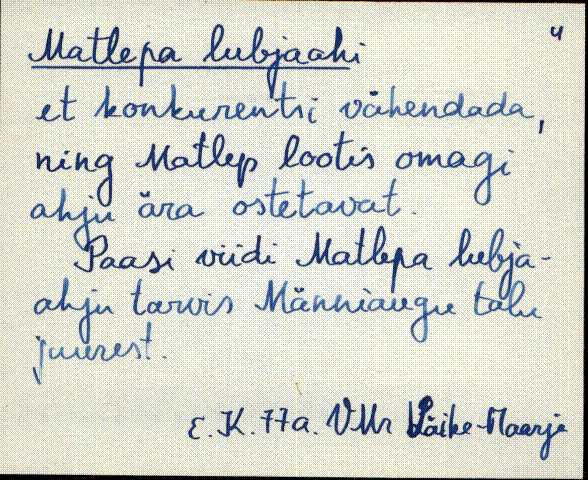 4
Matlepa lubjaahi
et konkurentsi vähendada,
ning Matlep lootis omagi
ahju ära ostetavat.
Paasi viidi Matlepa lubja-
ahju tarvis Männiaugu talu
juurest.
E.K. 77a. VMr Väike-Maarja